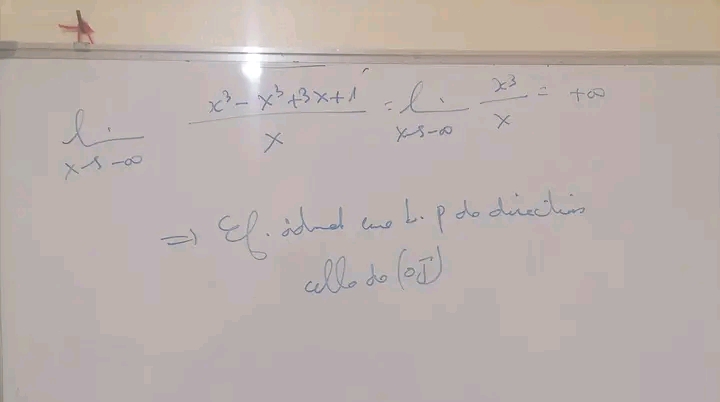 lim x→-∞ x³ - x³ + 3x + 1 / x = lim x→-∞ x³ / x = +∞
⇒ Cf admet une b.p de direction
celle de (oj)